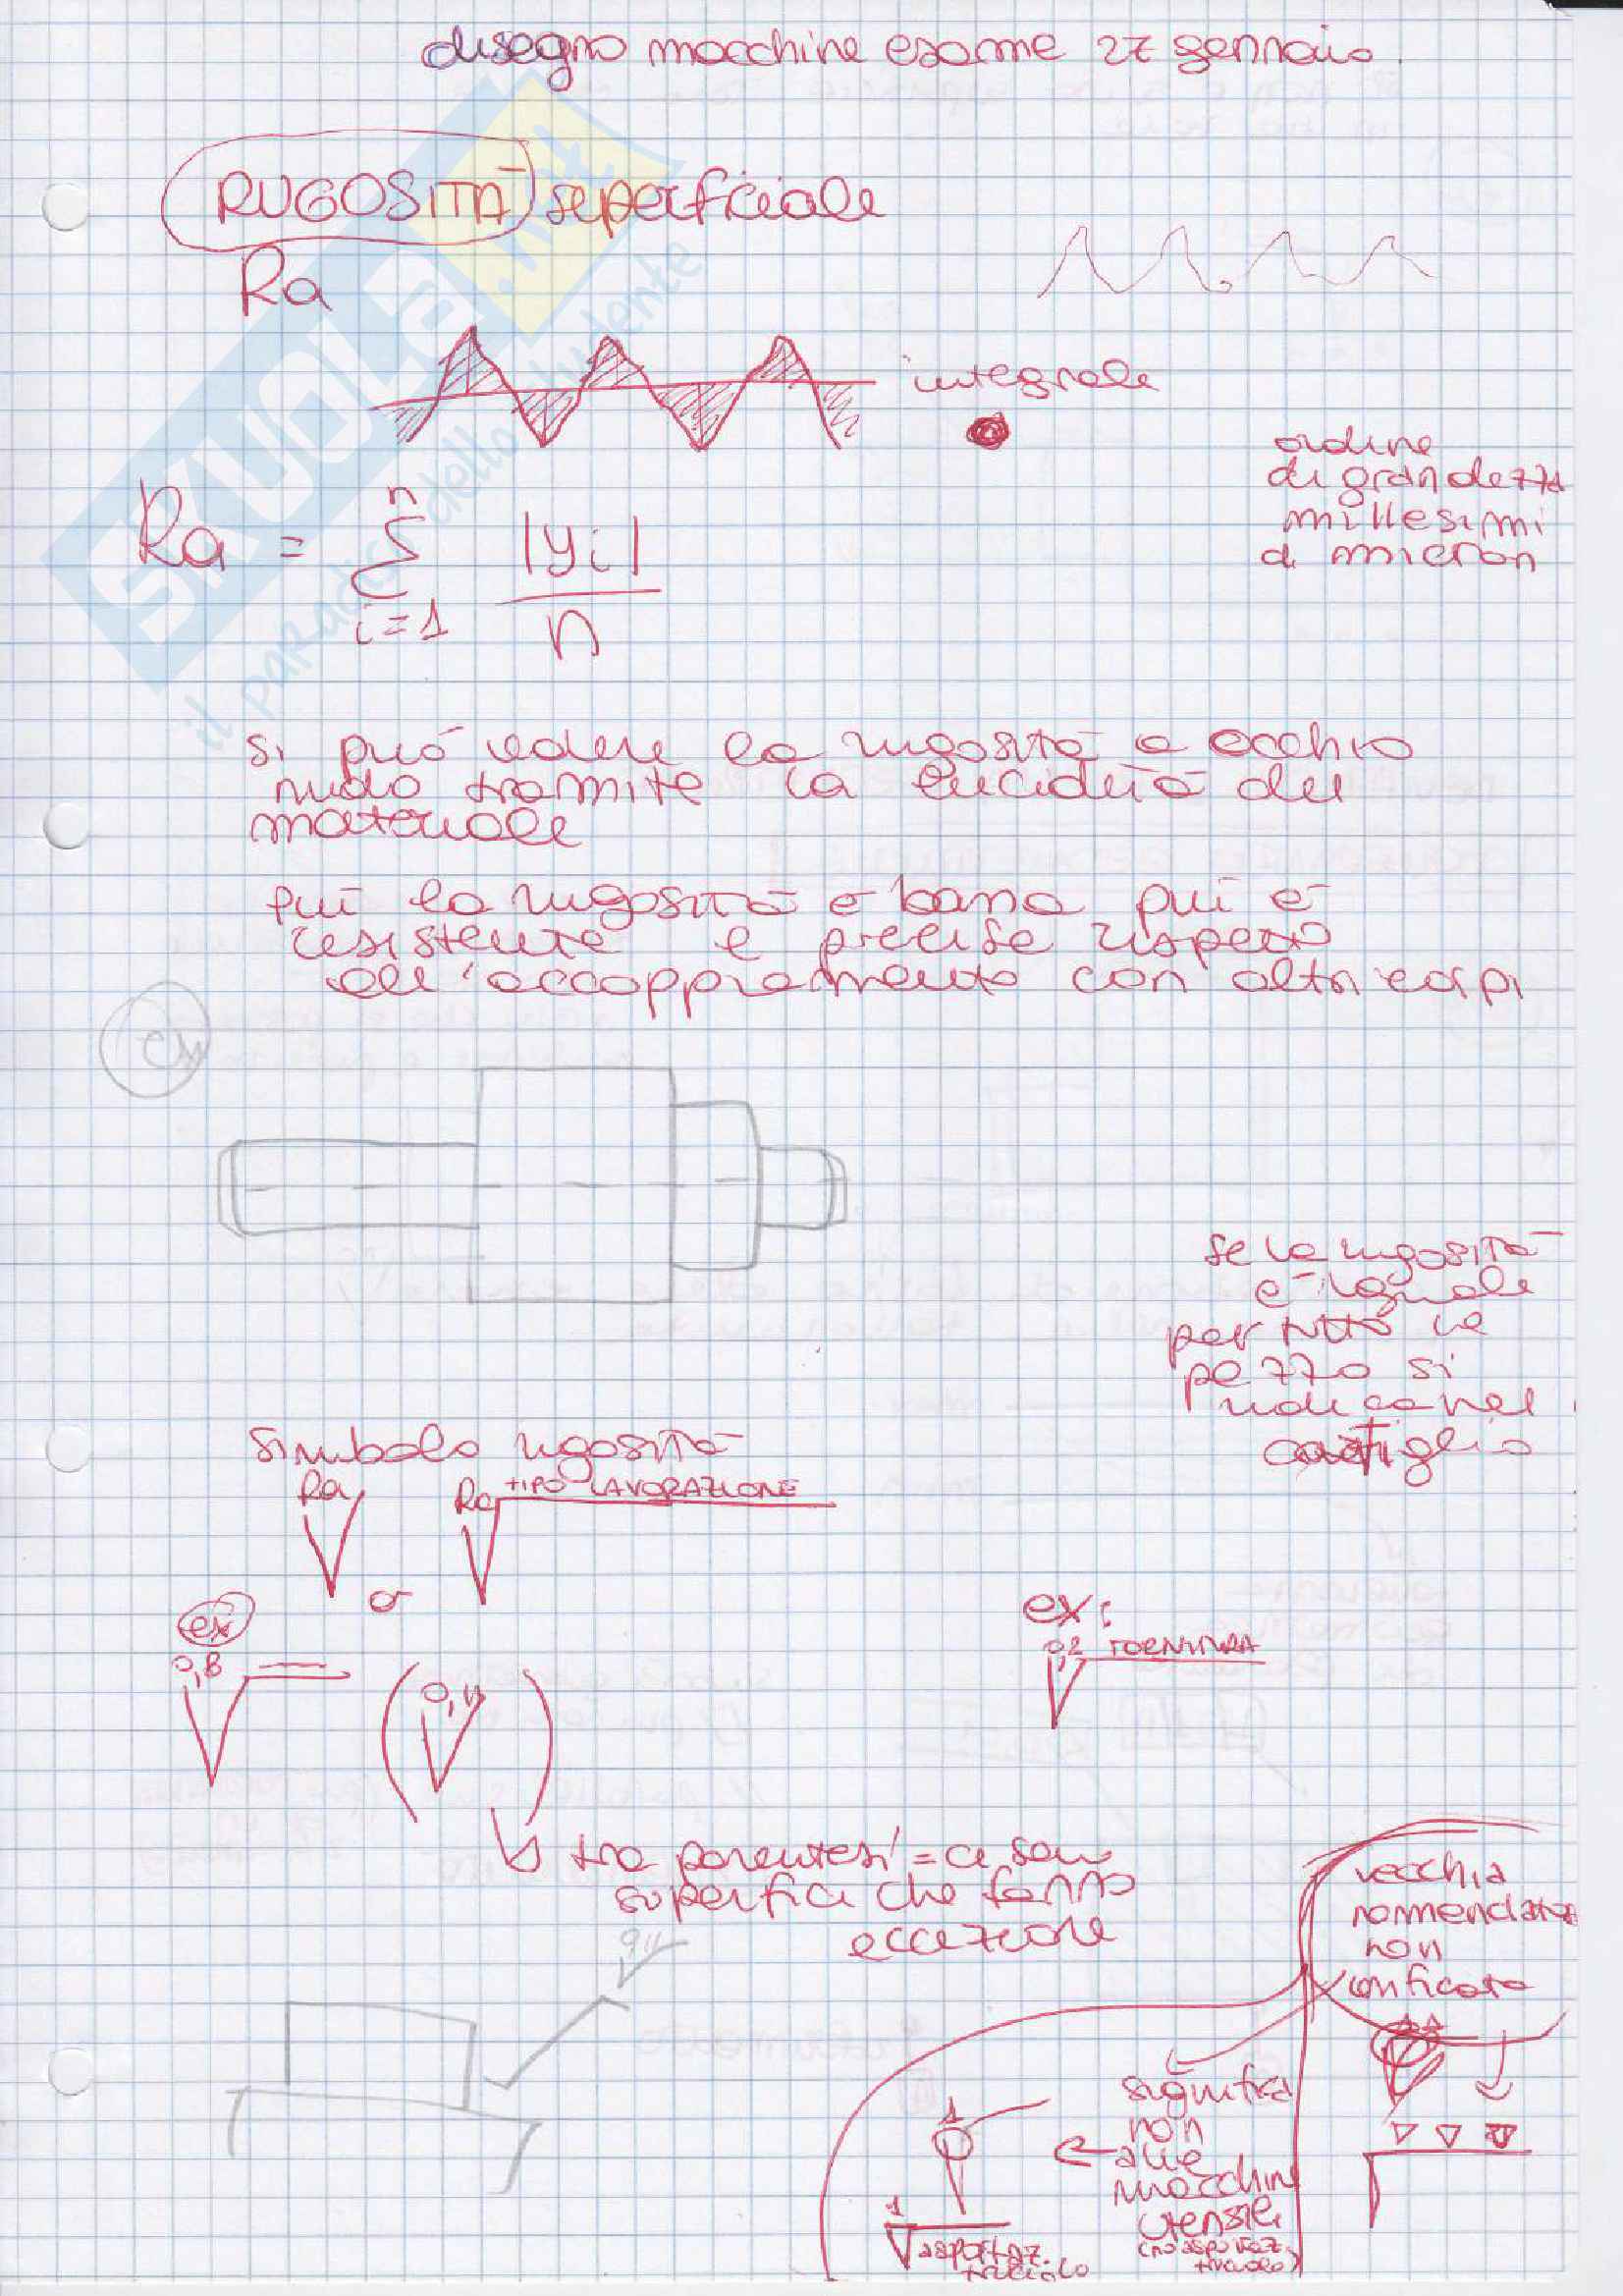 disegno macchine esame 27 gennaio.
RUGOSITÀ superficiale
Ra
integrale
ordine
di grandezza
millesimi
di micron
Ra = n Σ i=1 |yi| / n
si può vedere la rugosità a occhio
nudo tramite la lucidità del
materiale
più la rugosità è bassa più è
resistente e precise rispetto
all'accoppiamento con altri corpi
ex
se la rugosità
è uguale
per tutto il
pezzo si
indica nel
cartiglio
Simbolo rugosità
Ra
Ra TIPO LAVORAZIONE
or
ex
0,8
0,4
ex:
0,2 TORNITURA
tra parentesi = ci sono
superfici che fanno
eccezione
vecchia
nomenclatura
non
unificata
significa
non
alle
macchine
utensili
(no asportaz.
truciolo)
1
1
asportaz.
truciolo
SKUOLA.net
il paradiso dello studente